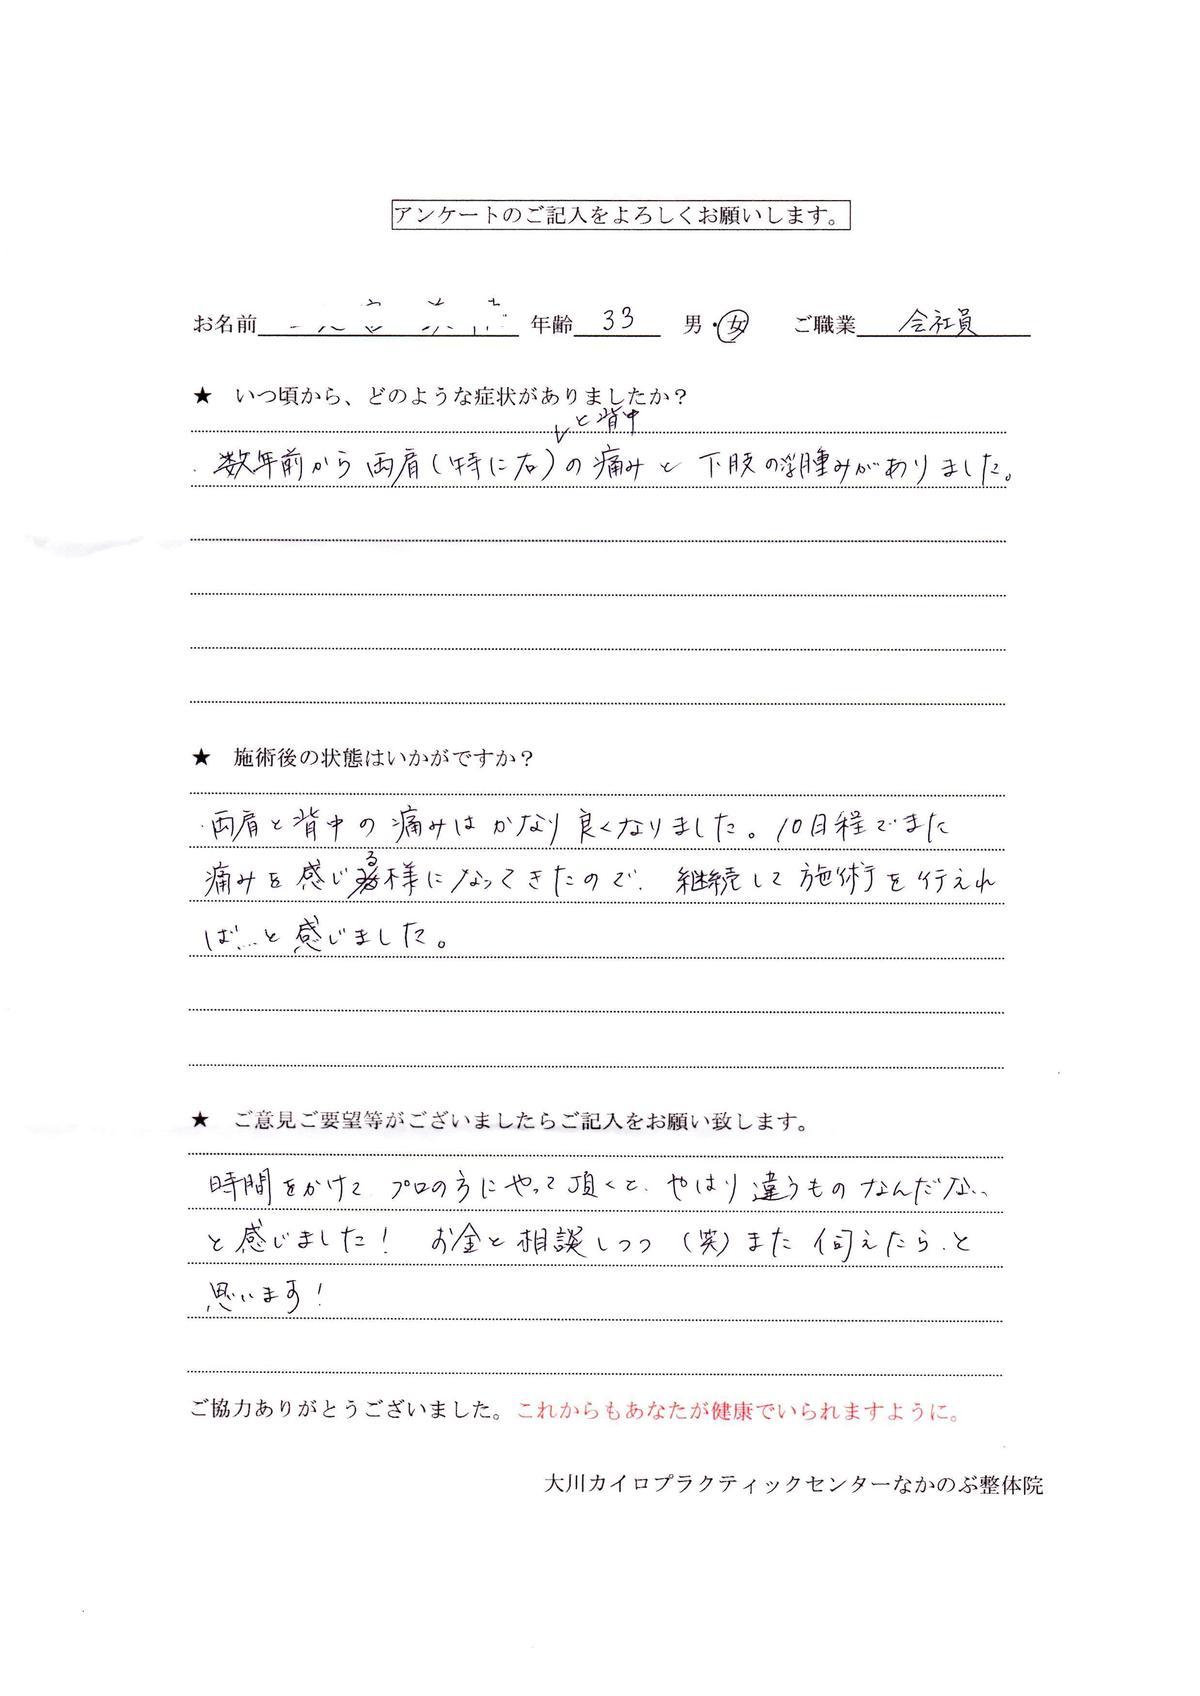 アンケートのご記入をよろしくお願いします。
お名前 年齢 33 男・女 ご職業 会社員
★ いつ頃から、どのような症状がありましたか？
と背中
数年前から両肩(特に右)の痛みと下肢の浮腫みがありました。
★ 施術後の状態はいかがですか？
両肩と背中の痛みはかなり良くなりました。10日程でまた
痛みを感じる様になってきたので、継続して施術を行えれ
ば…と感じました。
★ ご意見ご要望等がございましたらご記入をお願い致します。
時間をかけて、プロの方にやって頂くと、やはり違うものなんだな…
と感じました！ お金と相談しつつ(笑)また伺えたら、と
思います！
ご協力ありがとうございました。これからもあなたが健康でいられますように。
大川カイロプラクティックセンターなかのぶ整体院